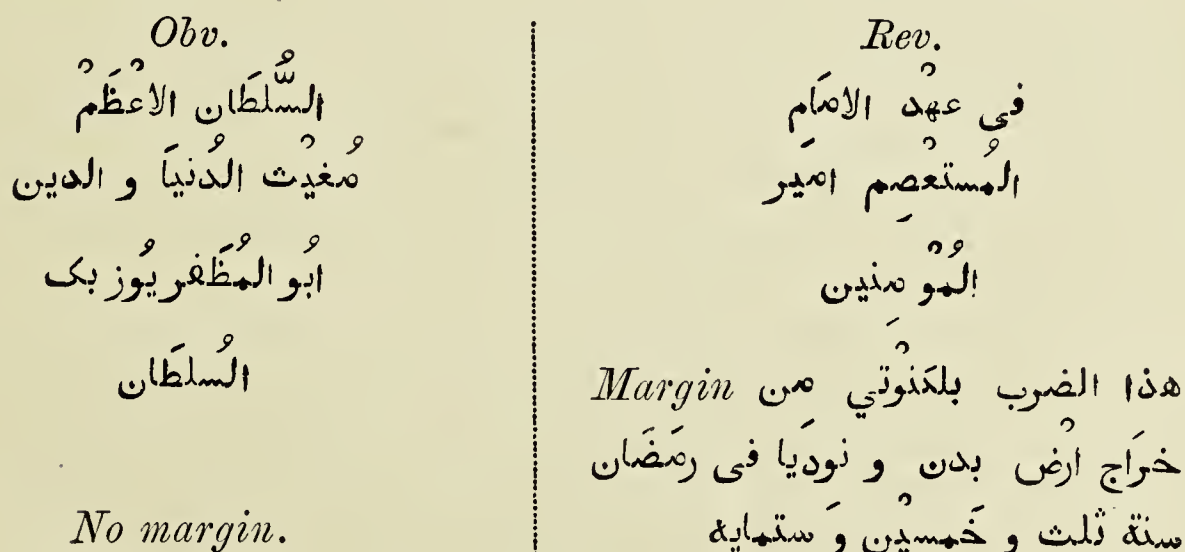 Obv.
السُّلطَان الاعْظَمْ
مُغيْث الدُنيَا و الدين
ابُو المُظَفر يُوز بک
السُلطَان
No margin.
Rev.
فى عهْد الامَام
المُستعْصِم امِير
المُوْمِنين
Margin هذا الضرب بلكنْوتي مِن
خرَاج ارْض بدن و نودِيا فى رمَضَان
سنة ثلث و خَمسيْن وَ ستمايه